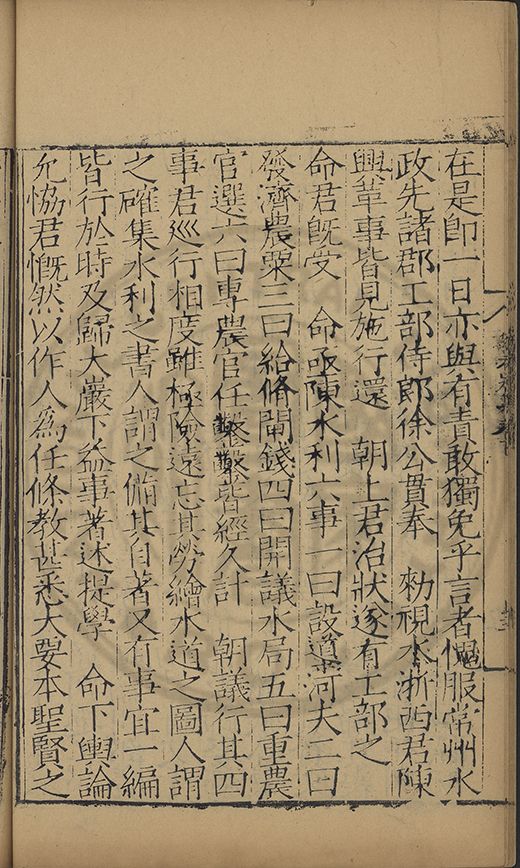 在是即一日亦與有責敢獨免乎言者愧服常州水
政先諸郡工部侍郎徐公貫奉 勑視水浙西君陳
興革事皆見施行還 朝上君治狀遂有工部之
命君旣受 命亟陳水利六事一曰設導河夫二曰
發濟農粟三曰給脩閘錢四曰開議水局五曰重農
官選六曰專農官任鑿鑿皆經久計 朝議行其四
事君巡行相度雖極險遠忘其勞繪水道之圖人謂
之確集水利之書人謂之備其自著又有事宜一編
皆行於時及歸大嚴下益事著述提學 命下輿論
允恊君慨然以作人爲任條教甚悉大要本聖賢之